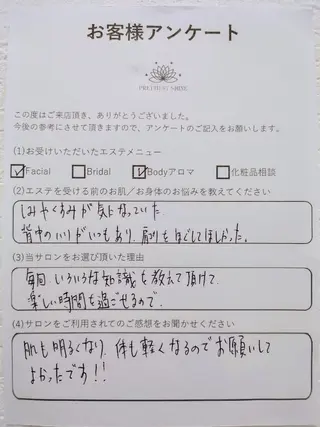 お客様アンケート
この度はご来店頂き、ありがとうございました。
今後の参考にさせて頂きますので、アンケートのご記入をお願いします。
(1)お受けいただいたエステメニュー
Facial Bridal Bodyアロマ 化粧品相談
(2)エステを受ける前のお肌／お身体のお悩みを教えてください
しみやくすみが気になっていた
背中のハリがいつもあり、肩こりをほぐしてほしかった。
(3)当サロンをお選び頂いた理由
毎回、いろいろな知識を教えて頂けて、
楽しい時間を過ごせるので。
(4)サロンをご利用されてのご感想をお聞かせください
肌も明るくなり、体も軽くなるのでお願いして
よかったです!!